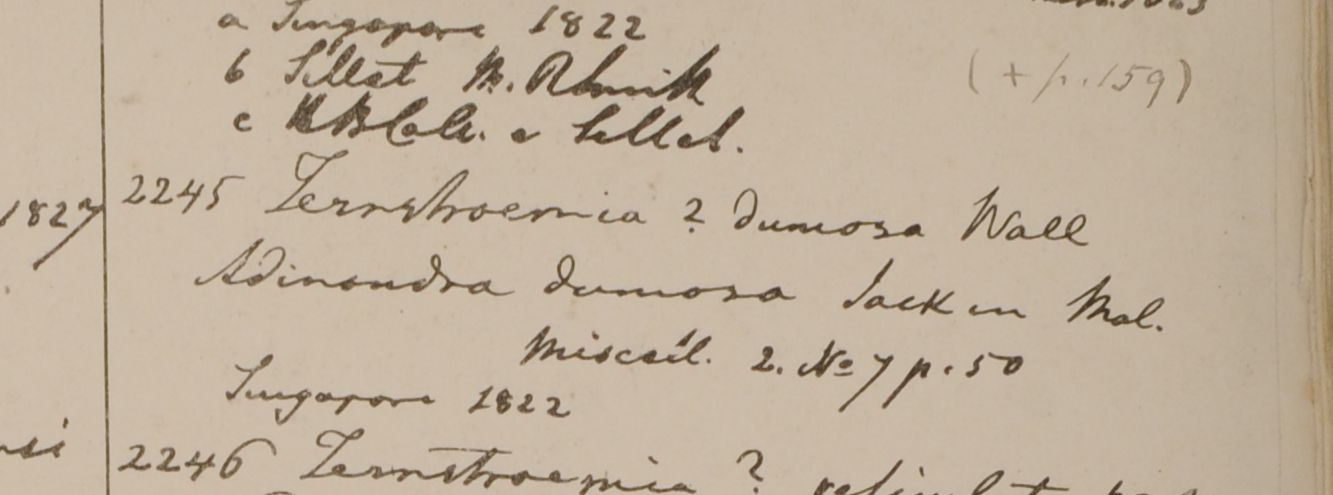 a Singapore 1822
b Sillet M. R.
(+ p. 159)
c H B Calc. e Sillet.
1827
2245 Ternstroemia ? dumosa Wall
Adinandra dumosa Jack in Mal.
Miscell. 2. No 7 p. 50
Singapore 1822
2246 Ternstroemia ?